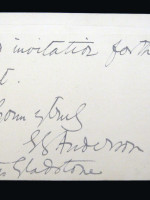 invitation for th
t.
Yours truly
EG Anderson
Gladstone